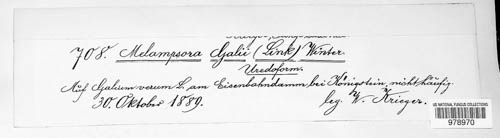 708. Melampsora Galii (Link) Winter.
Uredoform.
Auf Galium verum L. am Eisenbahndamm bei Königstein, nicht häufig
30. Oktober 1889. leg. W. Krieger.
US NATIONAL FUNGUS COLLECTIONS
978970